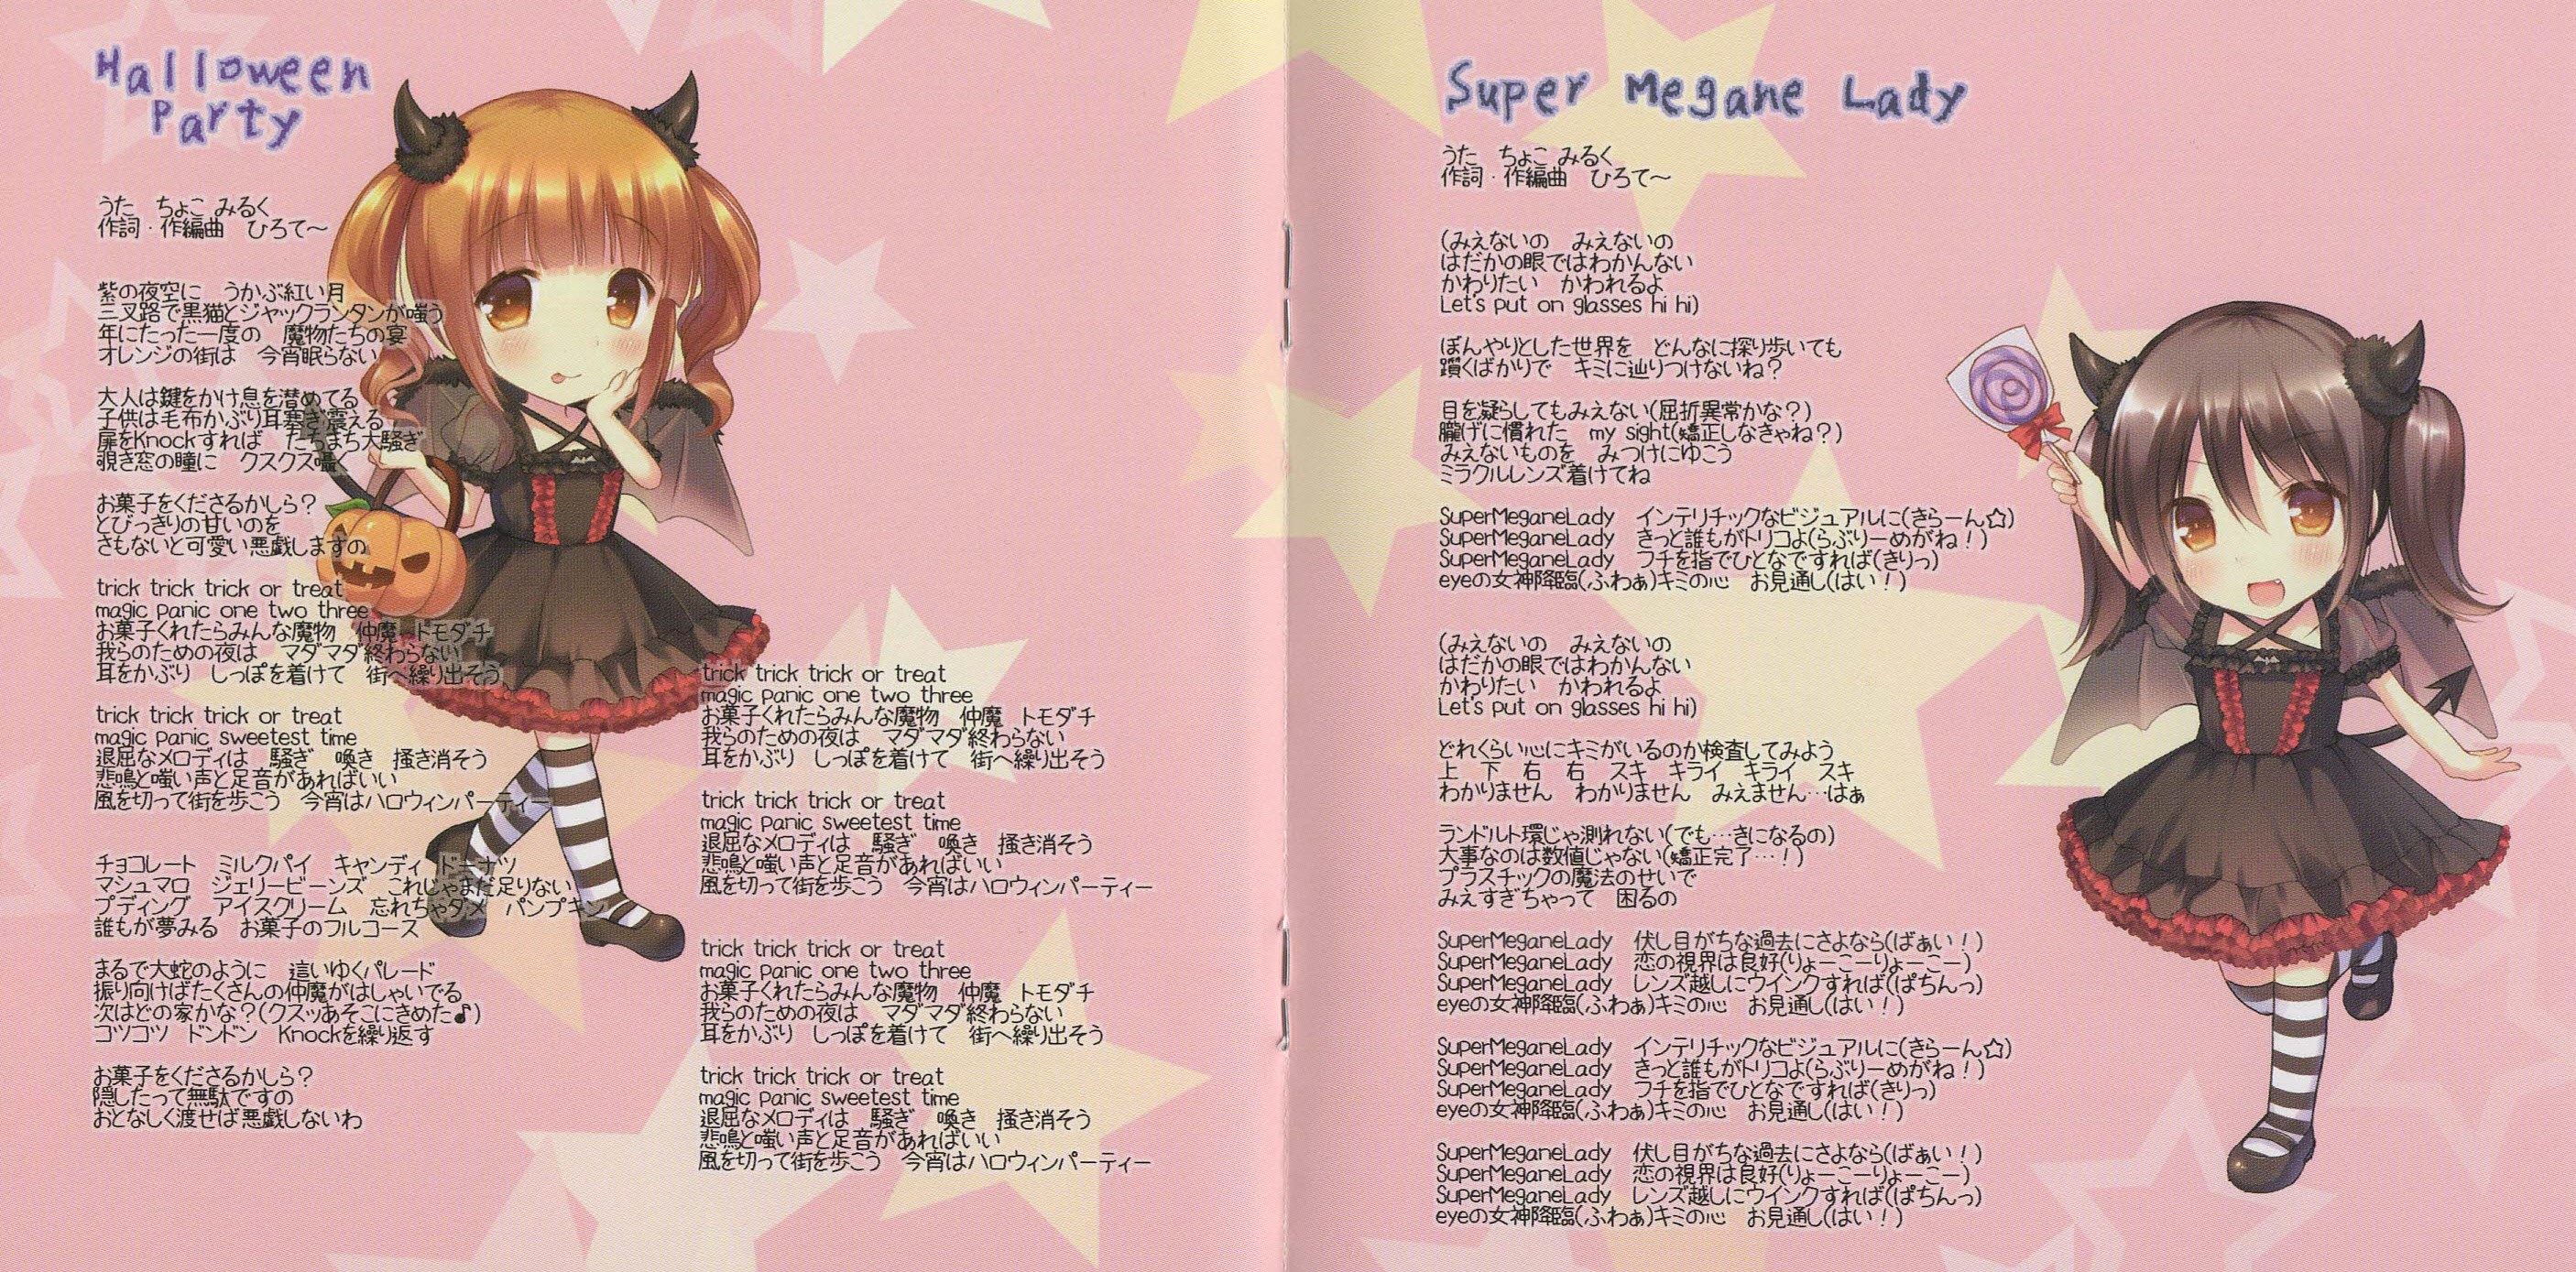 Halloween
Party
うた　ちょこ みるく
作詞・作編曲　ひろて〜
紫の夜空に　うかぶ紅い月
三叉路で黒猫とジャックランタンが嗤う
年にたった一度の　魔物たちの宴
オレンジの街は　今宵眠らない
大人は鍵をかけ息を潜めてる
子供は毛布かぶり耳塞ぎ震える
扉をKnockすれば　たちまち大騒ぎ
覗き窓の瞳に　クスクス囁く
お菓子をくださるかしら？
とびっきりの甘いのを
さもないと可愛い悪戯しますの
trick trick trick or treat
magic panic one two three
お菓子くれたらみんな魔物　仲魔　トモダチ
我らのための夜は　マダマダ終わらない
耳をかぶり　しっぽを着けて　街へ繰り出そう
trick trick trick or treat
magic panic sweetest time
退屈なメロディは　騒ぎ　喚き　掻き消そう
悲鳴と嗤い声と足音があればいい
風を切って街を歩こう　今宵はハロウィンパーティー
チョコレート　ミルクパイ　キャンディ　ドーナツ
マシュマロ　ジェリービーンズ　これじゃまだ足りない
プディング　アイスクリーム　忘れちゃダメ　パンプキン
誰もが夢みる　お菓子のフルコース
まるで大蛇のように　這いゆくパレード
振り向けばたくさんの仲魔がはしゃいでる
次はどの家かな？(クスッあそこにきめた♪)
コツコツ　ドンドン　Knockを繰り返す
お菓子をくださるかしら？
隠したって無駄ですの
おとなしく渡せば悪戯しないわ
trick trick trick or treat
magic panic one two three
お菓子くれたらみんな魔物　仲魔　トモダチ
我らのための夜は　マダマダ終わらない
耳をかぶり　しっぽを着けて　街へ繰り出そう
trick trick trick or treat
magic panic sweetest time
退屈なメロディは　騒ぎ　喚き　掻き消そう
悲鳴と嗤い声と足音があればいい
風を切って街を歩こう　今宵はハロウィンパーティー
trick trick trick or treat
magic panic one two three
お菓子くれたらみんな魔物　仲魔　トモダチ
我らのための夜は　マダマダ終わらない
耳をかぶり　しっぽを着けて　街へ繰り出そう
trick trick trick or treat
magic panic sweetest time
退屈なメロディは　騒ぎ　喚き　掻き消そう
悲鳴と嗤い声と足音があればいい
風を切って街を歩こう　今宵はハロウィンパーティー
Super Megane Lady
うた　ちょこ みるく
作詞・作編曲　ひろて〜
(みえないの　みえないの
はだかの眼ではわかんない
かわりたい　かわれるよ
Let's put on glasses hi hi)
ぼんやりとした世界を　どんなに探り歩いても
躓くばかりで　キミに辿りつけないね？
目を凝らしてもみえない(屈折異常かな？)
朧げに慣れた　my sight(矯正しなきゃね？)
みえないものを　みつけにゆこう
ミラクルレンズ着けてね
SuperMeganeLady　インテリチックなビジュアルに(きらーん☆)
SuperMeganeLady　きっと誰もがトリコよ(らぶりーめがね！)
SuperMeganeLady　フチを指でひとなですれば(きりっ)
eyeの女神降臨(ふわぁ)キミの心　お見通し(はい！)
(みえないの　みえないの
はだかの眼ではわかんない
かわりたい　かわれるよ
Let's put on glasses hi hi)
どれくらい心にキミがいるのか検査してみよう
上　下　右　右　スキ　キライ　キライ　スキ
わかりません　わかりません　みえません…はぁ
ランドルト環じゃ測れない(でも…きになるの)
大事なのは数値じゃない(矯正完了…！)
プラスチックの魔法のせいで
みえすぎちゃって　困るの
SuperMeganeLady　伏し目がちな過去にさよなら(ばぁい！)
SuperMeganeLady　恋の視界は良好(りょーこーりょーこー)
SuperMeganeLady　レンズ越しにウインクすれば(ぱちんっ)
eyeの女神降臨(ふわぁ)キミの心　お見通し(はい！)
SuperMeganeLady　インテリチックなビジュアルに(きらーん☆)
SuperMeganeLady　きっと誰もがトリコよ(らぶりーめがね！)
SuperMeganeLady　フチを指でひとなですれば(きりっ)
eyeの女神降臨(ふわぁ)キミの心　お見通し(はい！)
SuperMeganeLady　伏し目がちな過去にさよなら(ばぁい！)
SuperMeganeLady　恋の視界は良好(りょーこーりょーこー)
SuperMeganeLady　レンズ越しにウインクすれば(ぱちんっ)
eyeの女神降臨(ふわぁ)キミの心　お見通し(はい！)